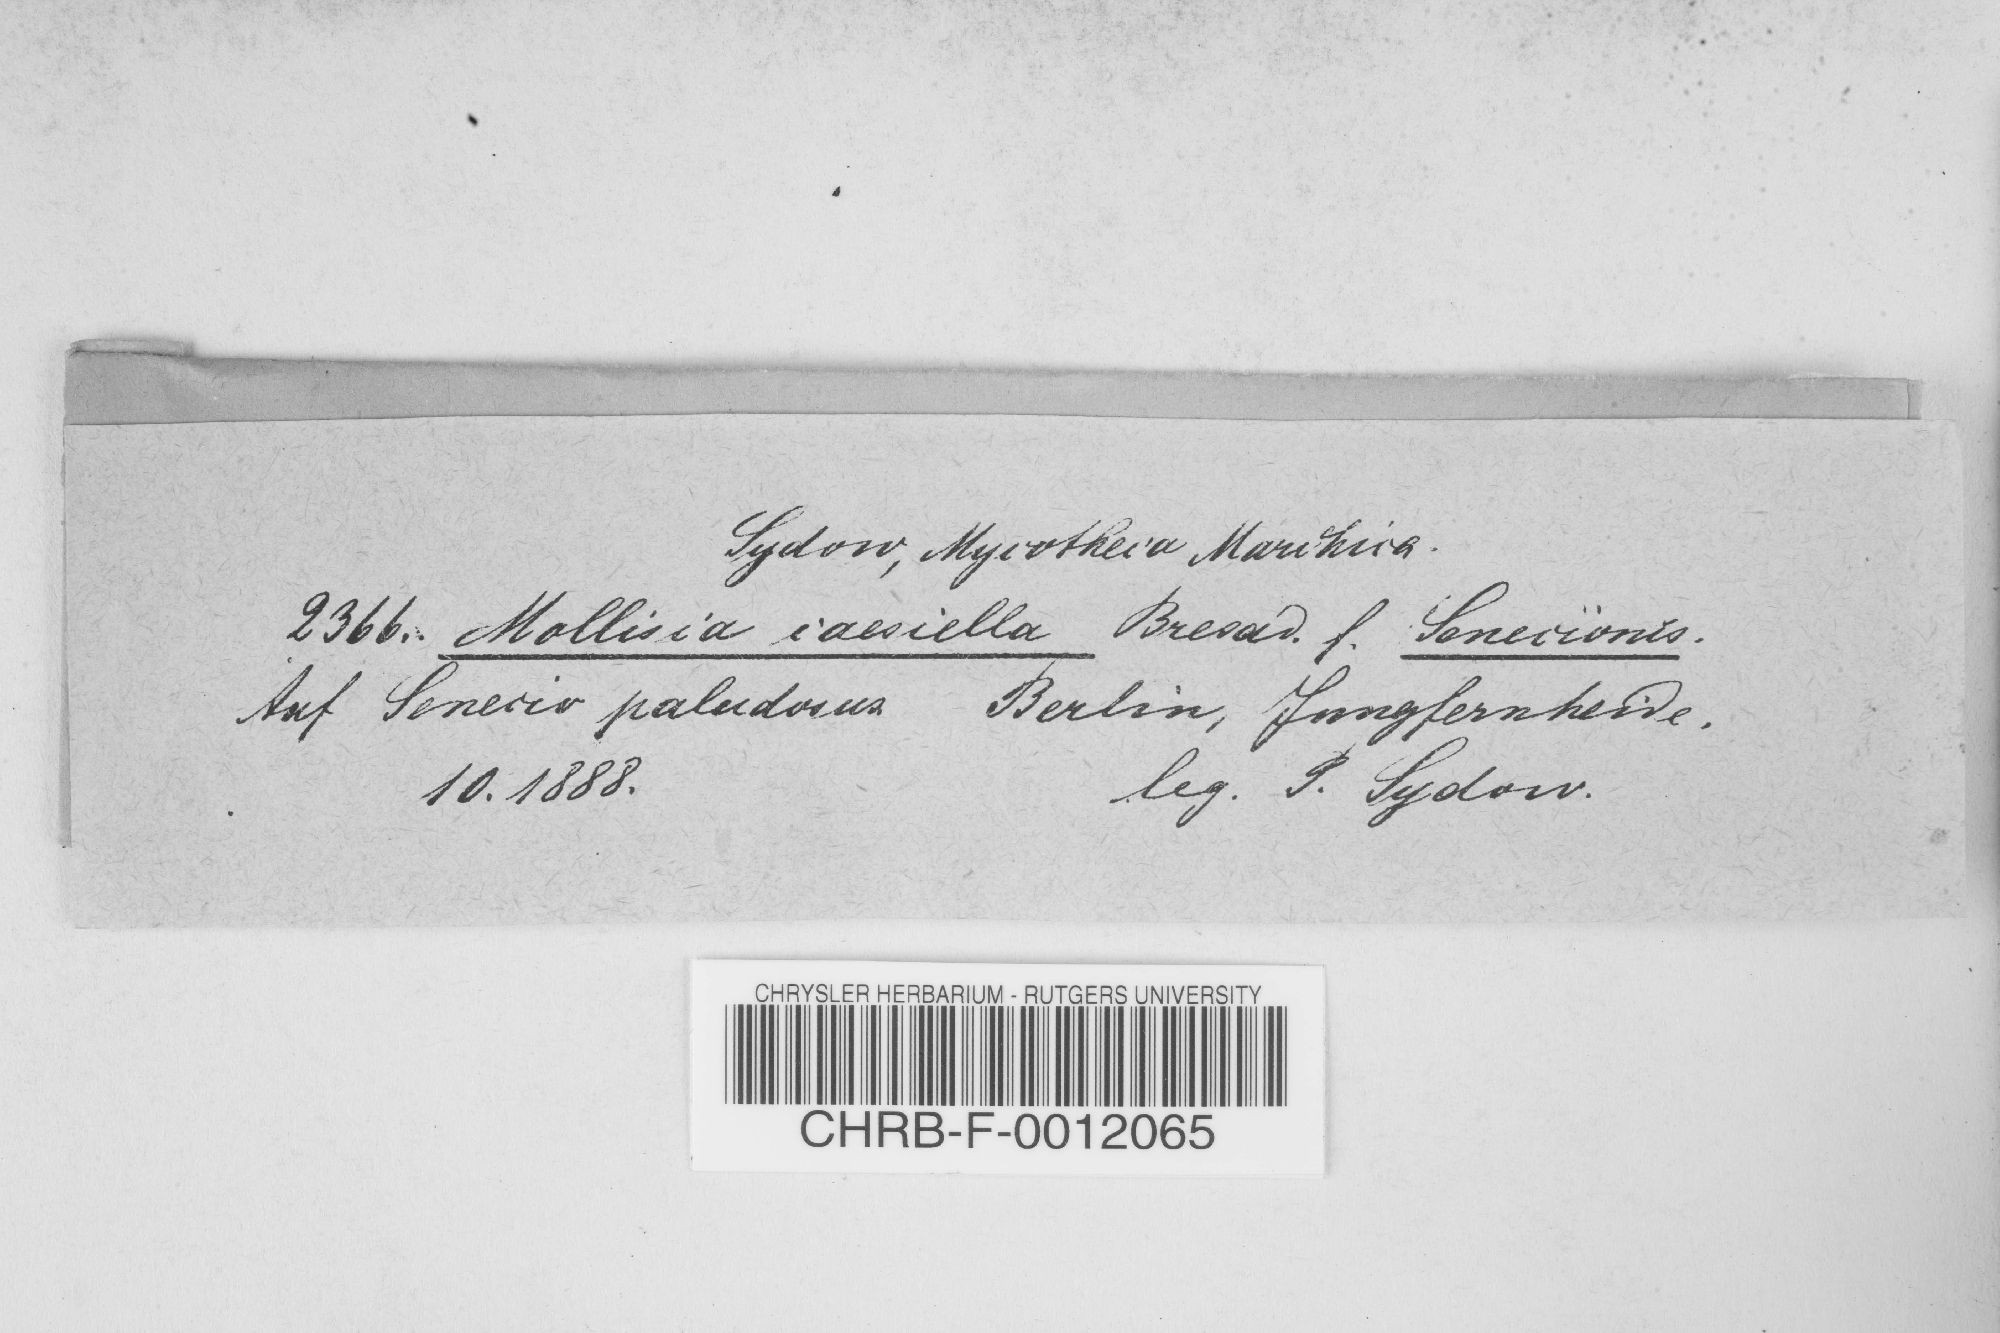 Sydow, Mycotheca Marchica.
2366. Mollisia caesiella Bresad. f. Senecionis.
Auf Senecio paludosus Berlin, Jungfernheide.
10. 1888. leg. P. Sydow.
CHRYSLER HERBARIUM - RUTGERS UNIVERSITY
CHRB-F-0012065